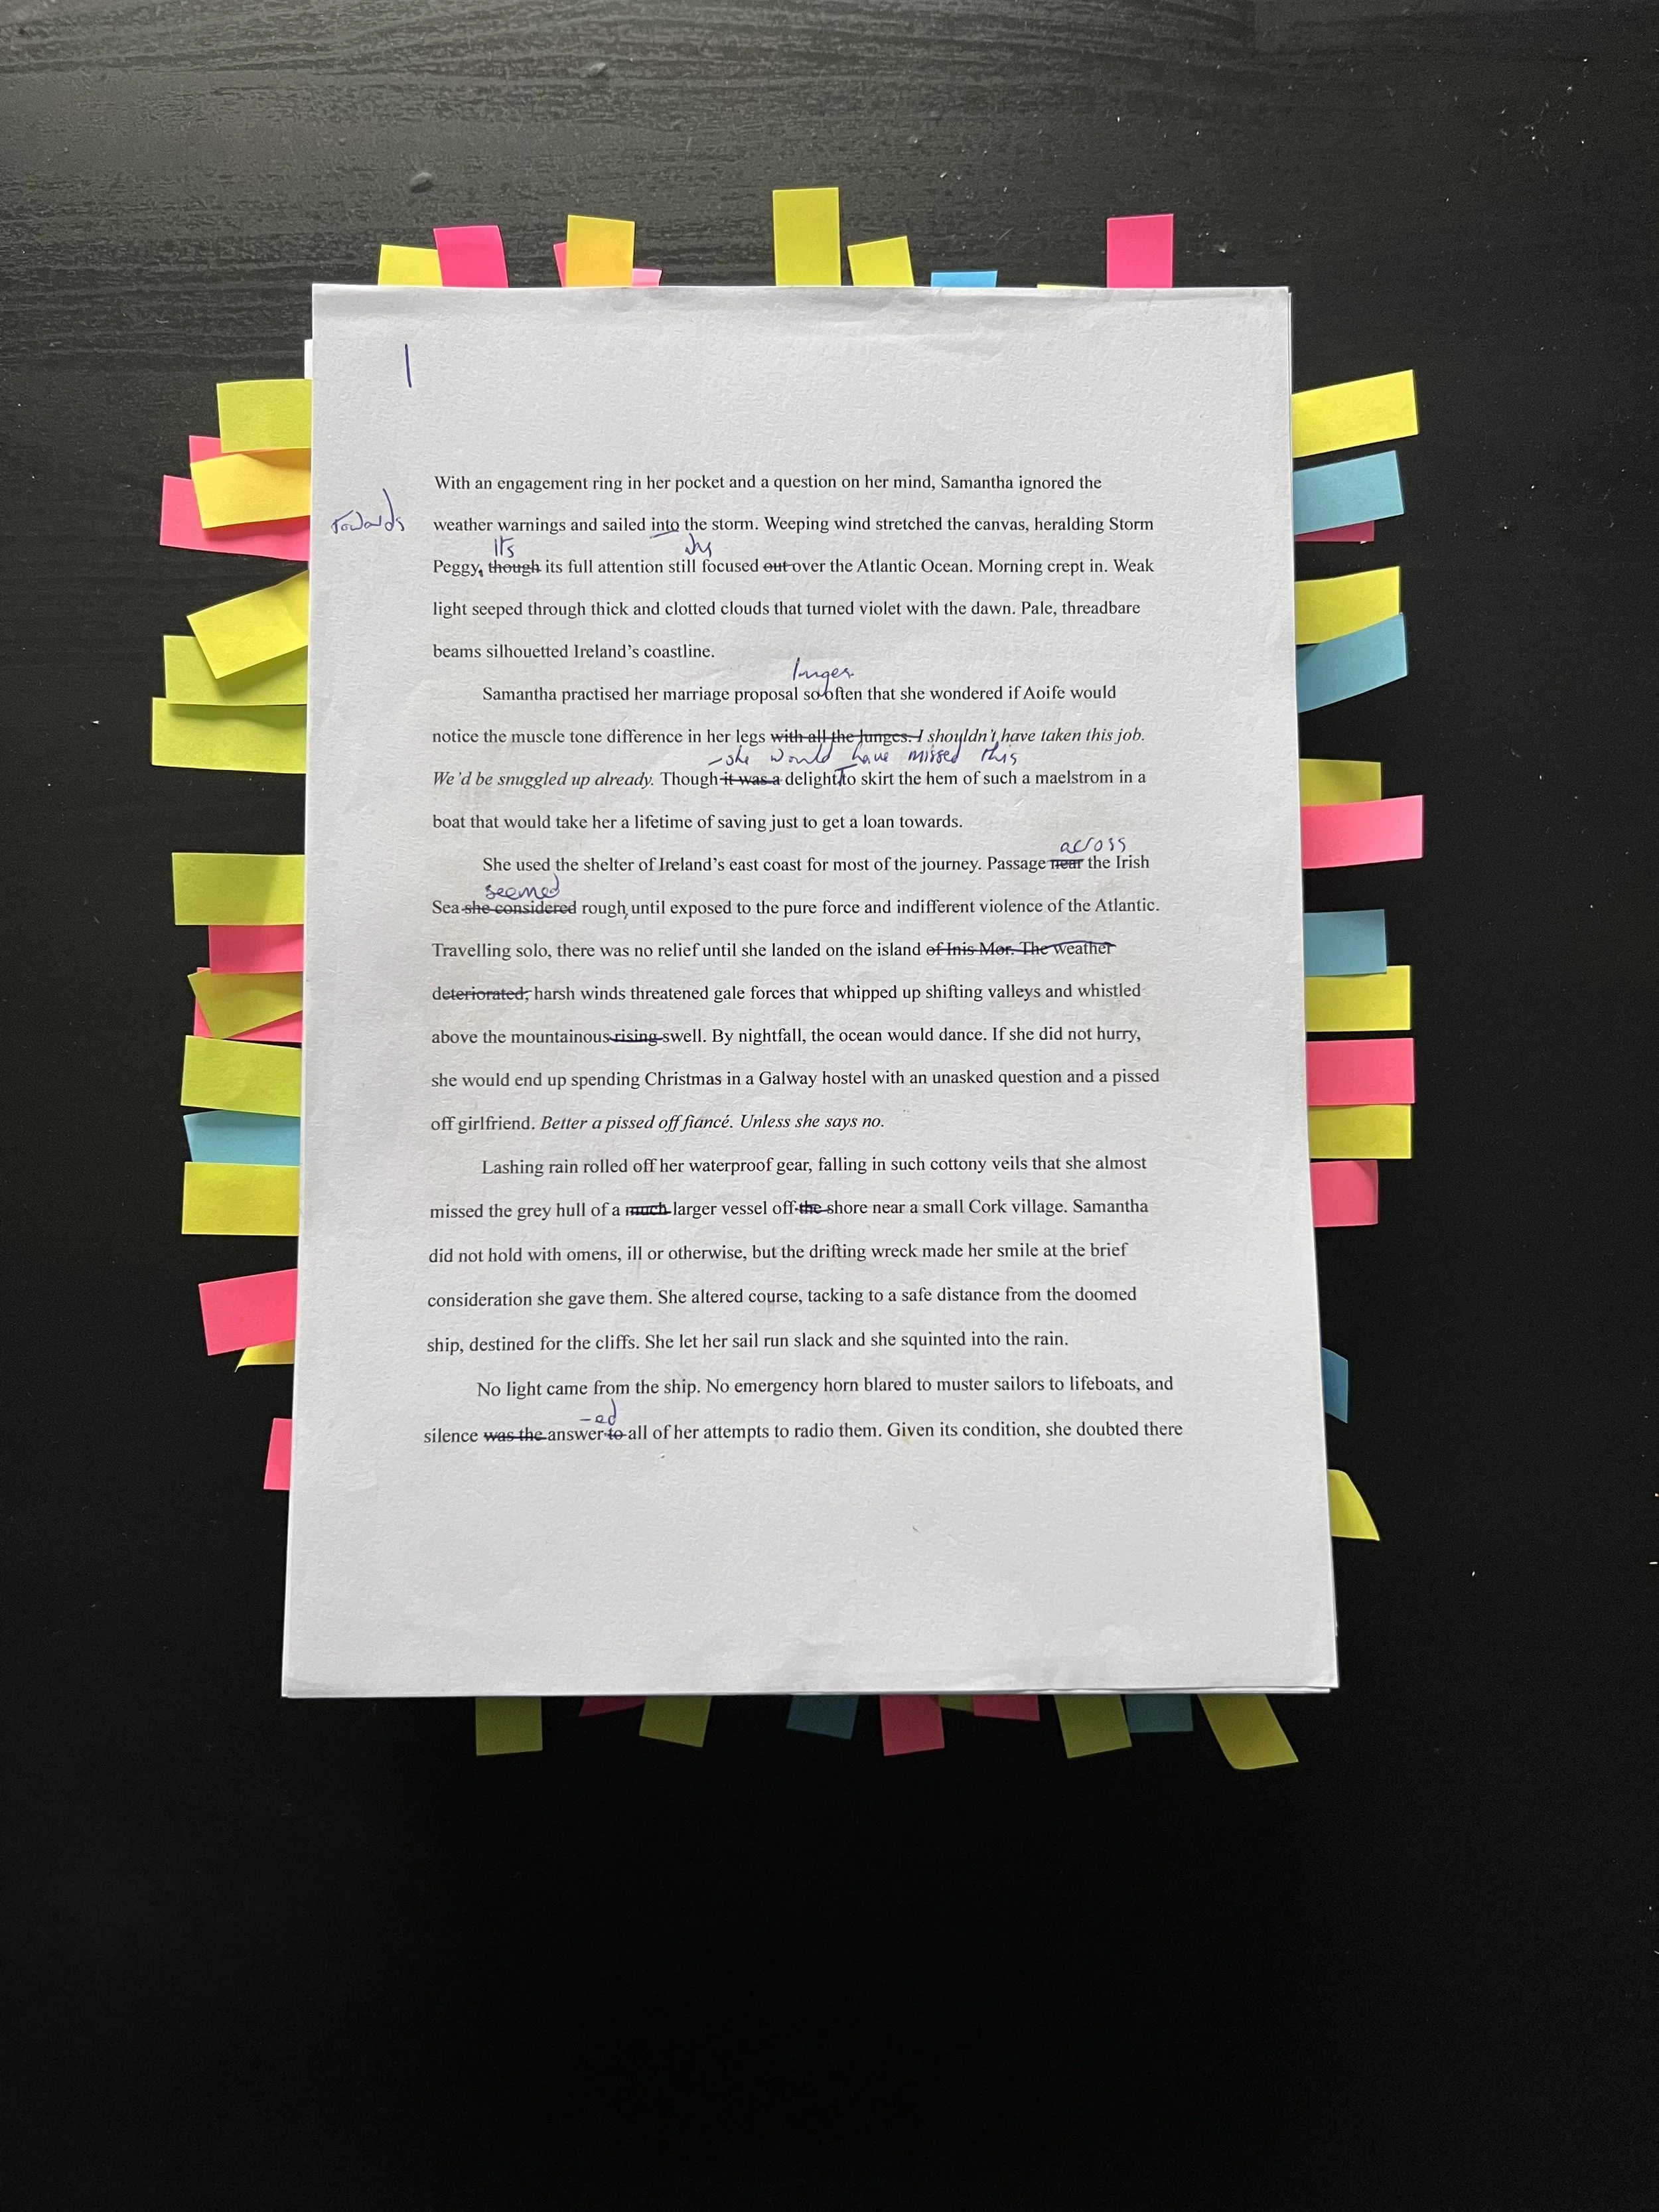 1
With an engagement ring in her pocket and a question on her mind, Samantha ignored the
towards
weather warnings and sailed into the storm. Weeping wind stretched the canvas, heralding Storm
Its
Peggy, though its full attention still focused out over the Atlantic Ocean. Morning crept in. Weak
light seeped through thick and clotted clouds that turned violet with the dawn. Pale, threadbare
beams silhouetted Ireland's coastline.
lunges
Samantha practised her marriage proposal so often that she wondered if Aoife would
notice the muscle tone difference in her legs with all the lunges. I shouldn't have taken this job.
-she would have missed this
We'd be snuggled up already. Though it was a delight to skirt the hem of such a maelstrom in a
boat that would take her a lifetime of saving just to get a loan towards.
across
She used the shelter of Ireland's east coast for most of the journey. Passage near the Irish
seemed
Sea she considered rough, until exposed to the pure force and indifferent violence of the Atlantic.
Travelling solo, there was no relief until she landed on the island of Inis Mor. The weather
deteriorated, harsh winds threatened gale forces that whipped up shifting valleys and whistled
above the mountainous rising swell. By nightfall, the ocean would dance. If she did not hurry,
she would end up spending Christmas in a Galway hostel with an unasked question and a pissed
off girlfriend. Better a pissed off fiancé. Unless she says no.
Lashing rain rolled off her waterproof gear, falling in such cottony veils that she almost
missed the grey hull of a much larger vessel off the shore near a small Cork village. Samantha
did not hold with omens, ill or otherwise, but the drifting wreck made her smile at the brief
consideration she gave them. She altered course, tacking to a safe distance from the doomed
ship, destined for the cliffs. She let her sail run slack and she squinted into the rain.
No light came from the ship. No emergency horn blared to muster sailors to lifeboats, and
-ed
silence was the answer to all of her attempts to radio them. Given its condition, she doubted there